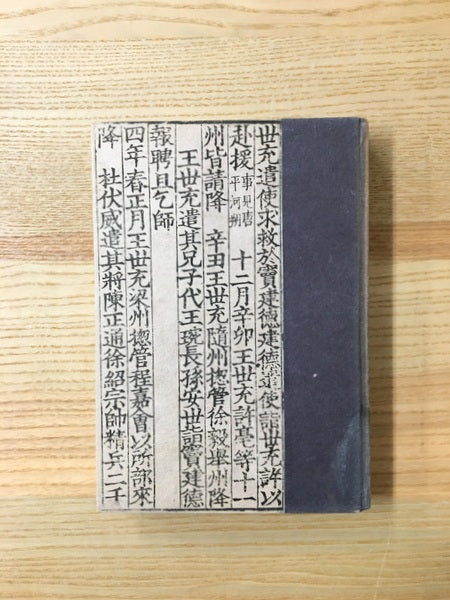 世充遣使求救於竇建德建德遣使詣世充許以
赴援事見唐平河朔 十二月辛卯王世充許亳等十一
州皆請降 辛丑王世充隨州揔管徐毅舉州降
王世充遣其兄子代王琬長孫安世詣竇建德
報聘且乞師
四年春正月王世充梁州揔管程嘉會以所部來
降 杜伏威遣其將陳正通徐紹宗帥精兵二千